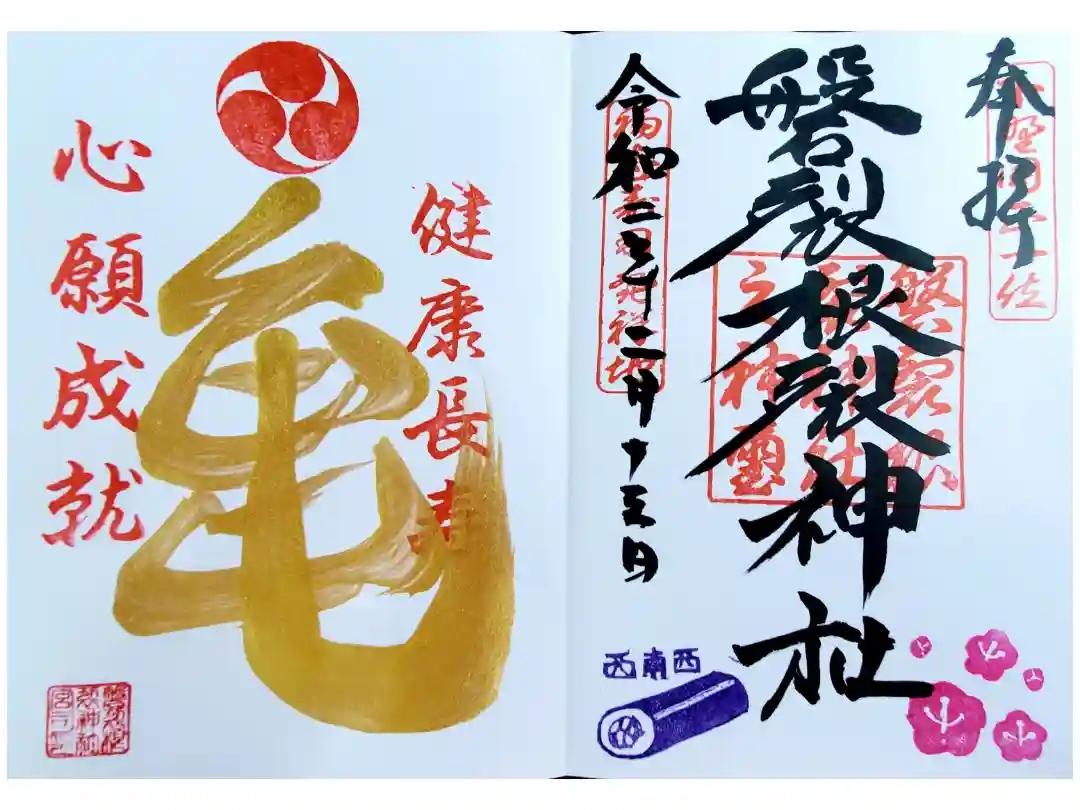 奉拝
下野国正一位
磐裂根裂神社
磐裂根
裂神社
之神璽
令和二年十二月十三日
西南西
健康長寿
亀
心願成就